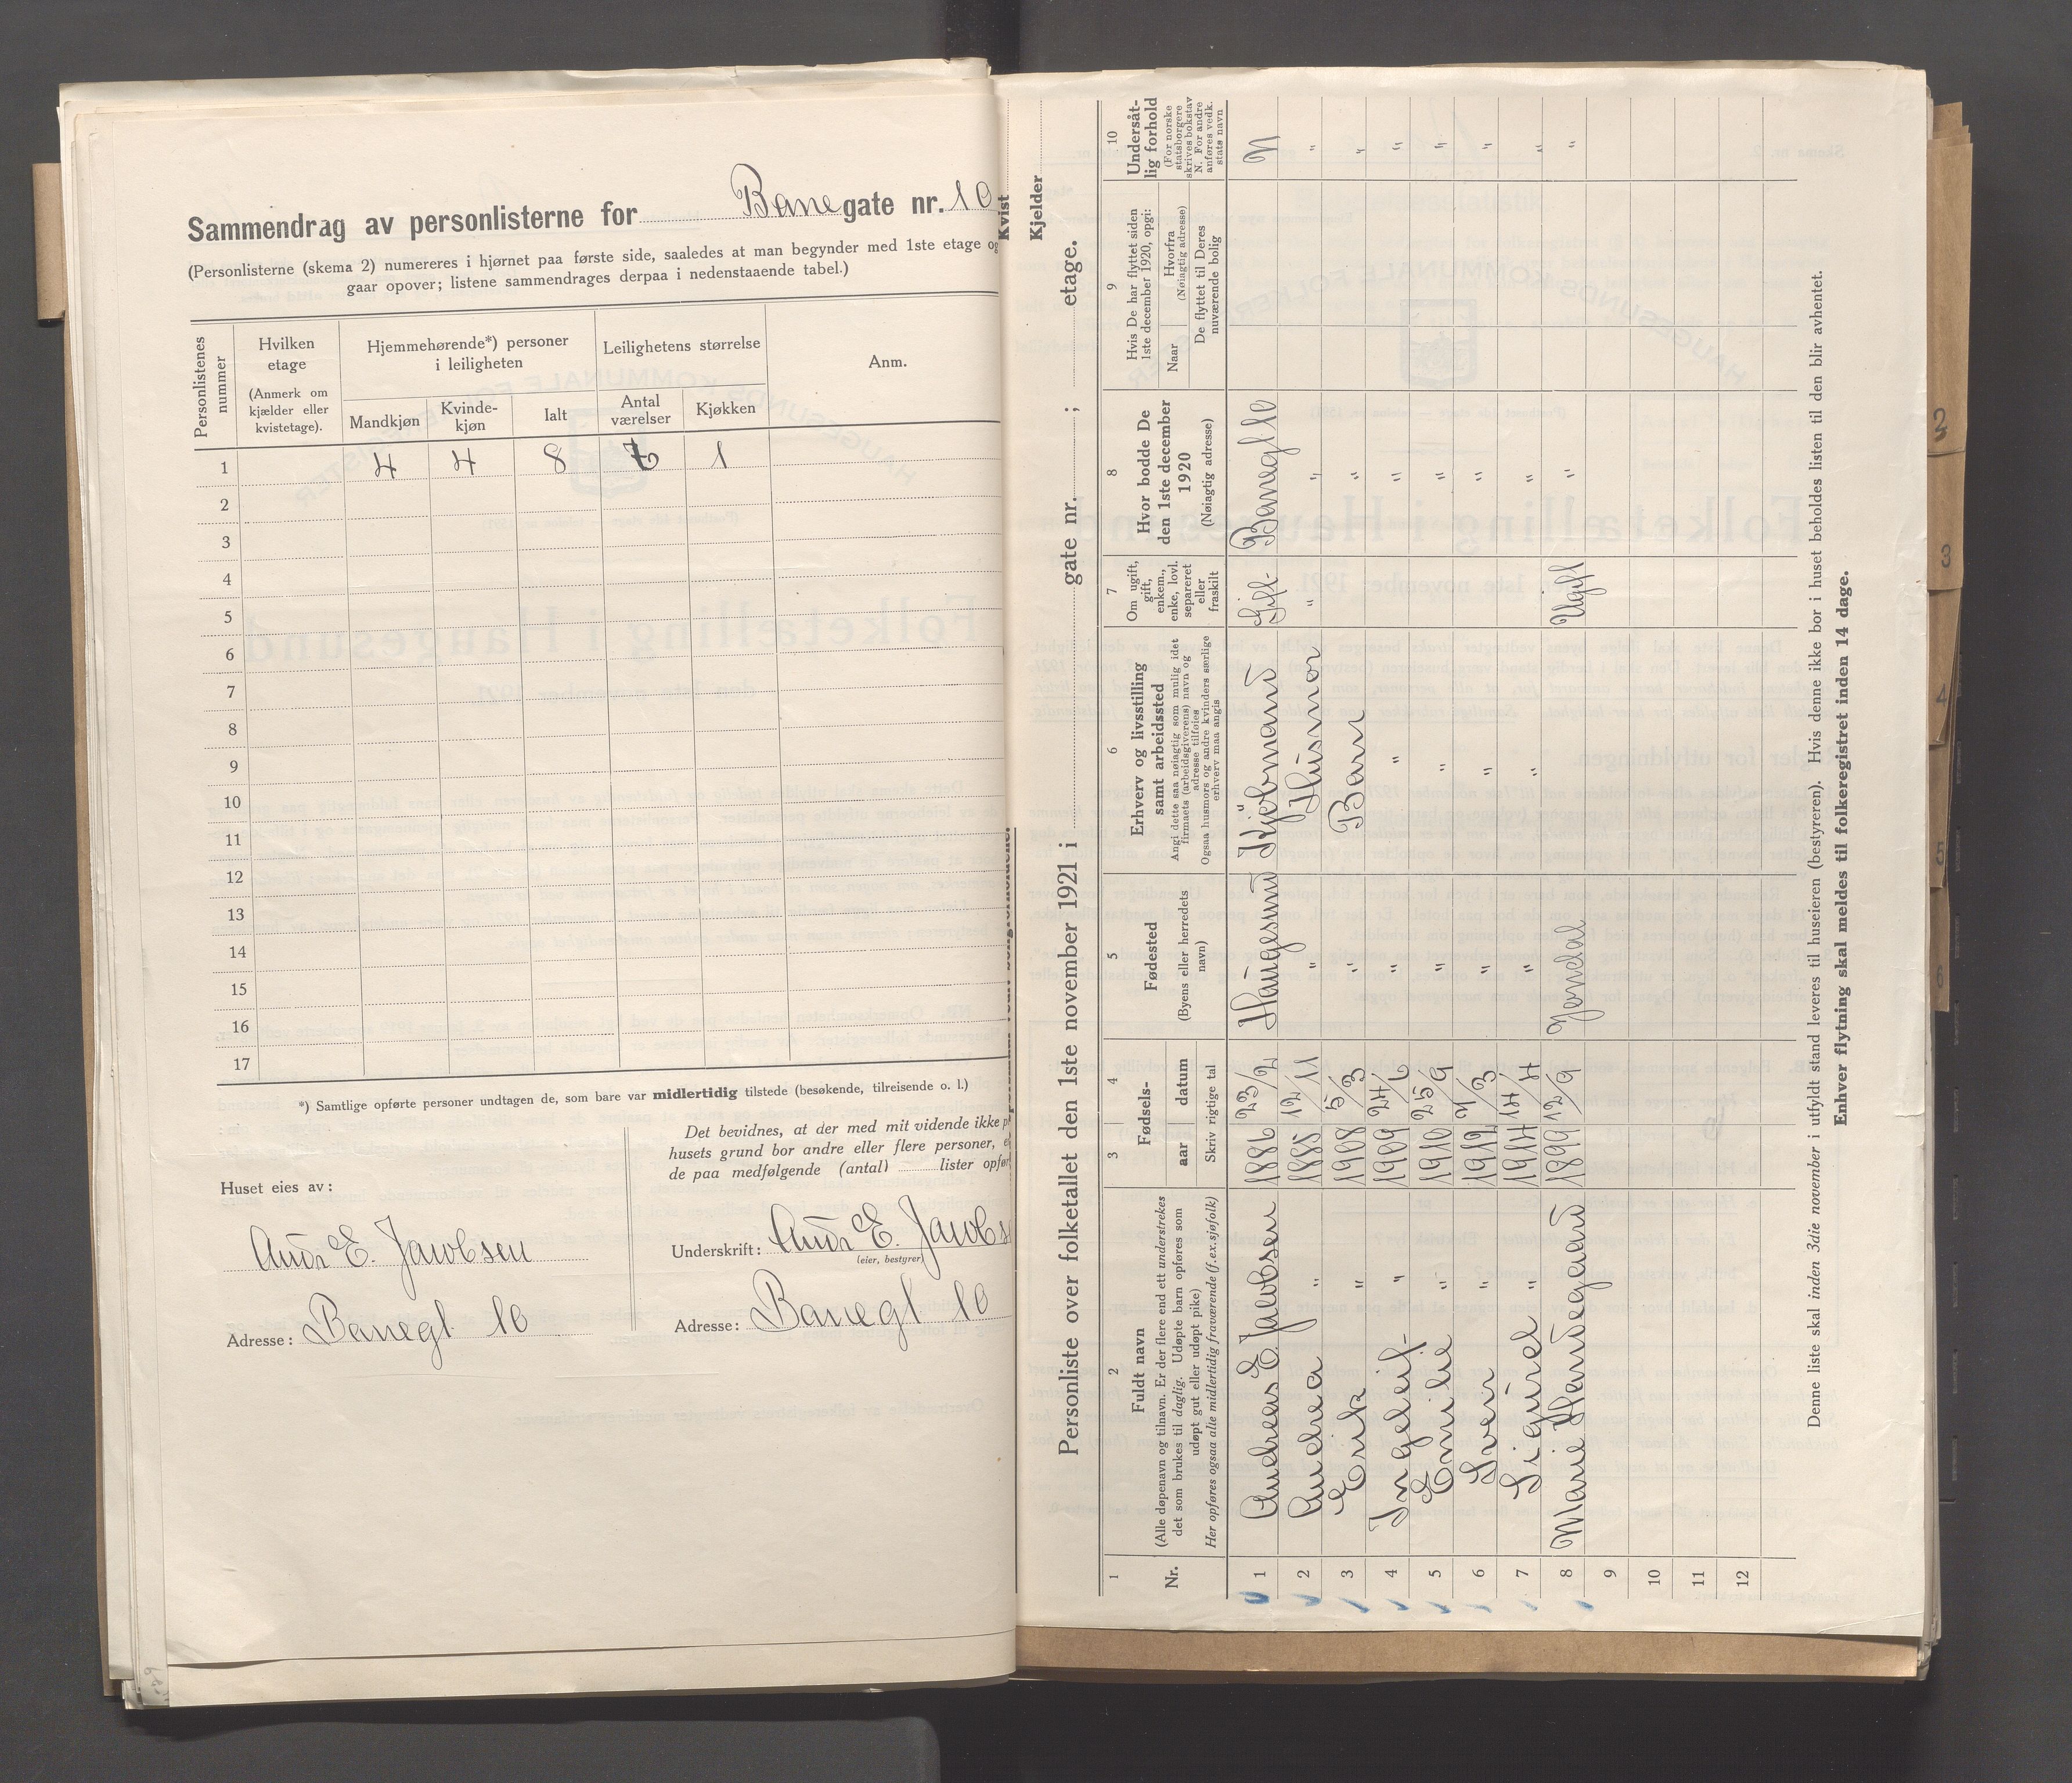 Sammendrag av personlisterne for Bane gate nr. 10
(Personlisterne (skema 2) numereres i hjørnet paa første side, saaledes at man begynder med 1ste etage og
gaar opover; listene sammendrages derpaa i nedenstaaende tabel.)
Personlistenes nummer
Hvilken etage
(Anmerk om kjælder eller kvistetage).
Hjemmehørende*) personer i leiligheten
Mandkjøn
Kvinde-kjøn
Ialt
Leilighetens størrelse
Antal værelser
Kjøkken
Anm.
1 4 4 8 7 1
2
3
4
5
6
7
8
9
10
11
12
13
14
15
16
17
*) Samtlige opførte personer undtagen de, som bare var midlertidig tilstede (besøkende, tilreisende o. l.)
Det bevidnes, at der med mit vidende ikke p
husets grund bor andre eller flere personer, e
de paa medfølgende (antal) lister opfør
Huset eies av:
Andr E. Jacobsen
Adresse: Banegt 10
Underskrift: Andr E. Jacobs
(eier, bestyrer)
Adresse: Banegt 10
Kvist
Kjelder
Personliste over folketallet den 1ste november 1921 i gate nr. ; etage.
1
Nr.
2
Fuldt navn
(Alle døpenavn og tilnavn. Er der flere end ett understrekes
det som brukes til daglig. Udøpte barn opføres som
udøpt gut eller udøpt pike)
Her opføres ogsaa alle midlertidig fraværende (f.ex.sjøfolk)
3 4
Fødsels-
aar datum
Skriv rigtige tal
5
Fødested
(Byens eller herredets
navn)
6
Erhverv og livsstilling
samt arbeidssted
Angi dette saa nøiagtig som mulig idet
firmaets (arbeidsgiverens) navn og
adresse tilføies
Ogsaa husmors og andre kvinders særlige
erhverv maa angis
7
Om ugift,
gift,
enkem.,
enke, lovl.
separeret
eller
fraskilt
8
Hvor bodde De
den 1ste december
1920
(Nøiagtig adresse)
9
Hvis De har flyttet siden
1ste december 1920, opgi:
Naar
Hvorfra
(Nøiagtig adresse)
De flyttet til Deres
nuværende bolig
10
Undersåt-
lig forhold
(For norske
statsborgere
skrives bokstav
N. For andre
anføres vedk.
stats navn
1 Andreas E. Jacobsen 1886 23/2 Haugesund Kjøbmand Gift Banegt 10 N
2 Andrea " 1885 12/11 " Husmor " " "
3 Erik " 1908 5/3 " Barn " "
4 Ingeleif " 1909 24/6 " " " "
5 Emilie " 1910 25/9 " " " "
6 Sverr " 1912 7/3 " " " "
7 Sigurd " 1914 14/4 " " " "
8 Marie Handegaard 1899 12/9 Jondal Ugift " "
9
10
11
12
Denne liste skal inden 3die november i utfyldt stand leveres til huseieren (bestyreren). Hvis denne ikke bor i huset beholdes listen til den blir avhentet.
Enhver flytning skal meldes til folkeregistret inden 14 dage.
2
3
4
5
6